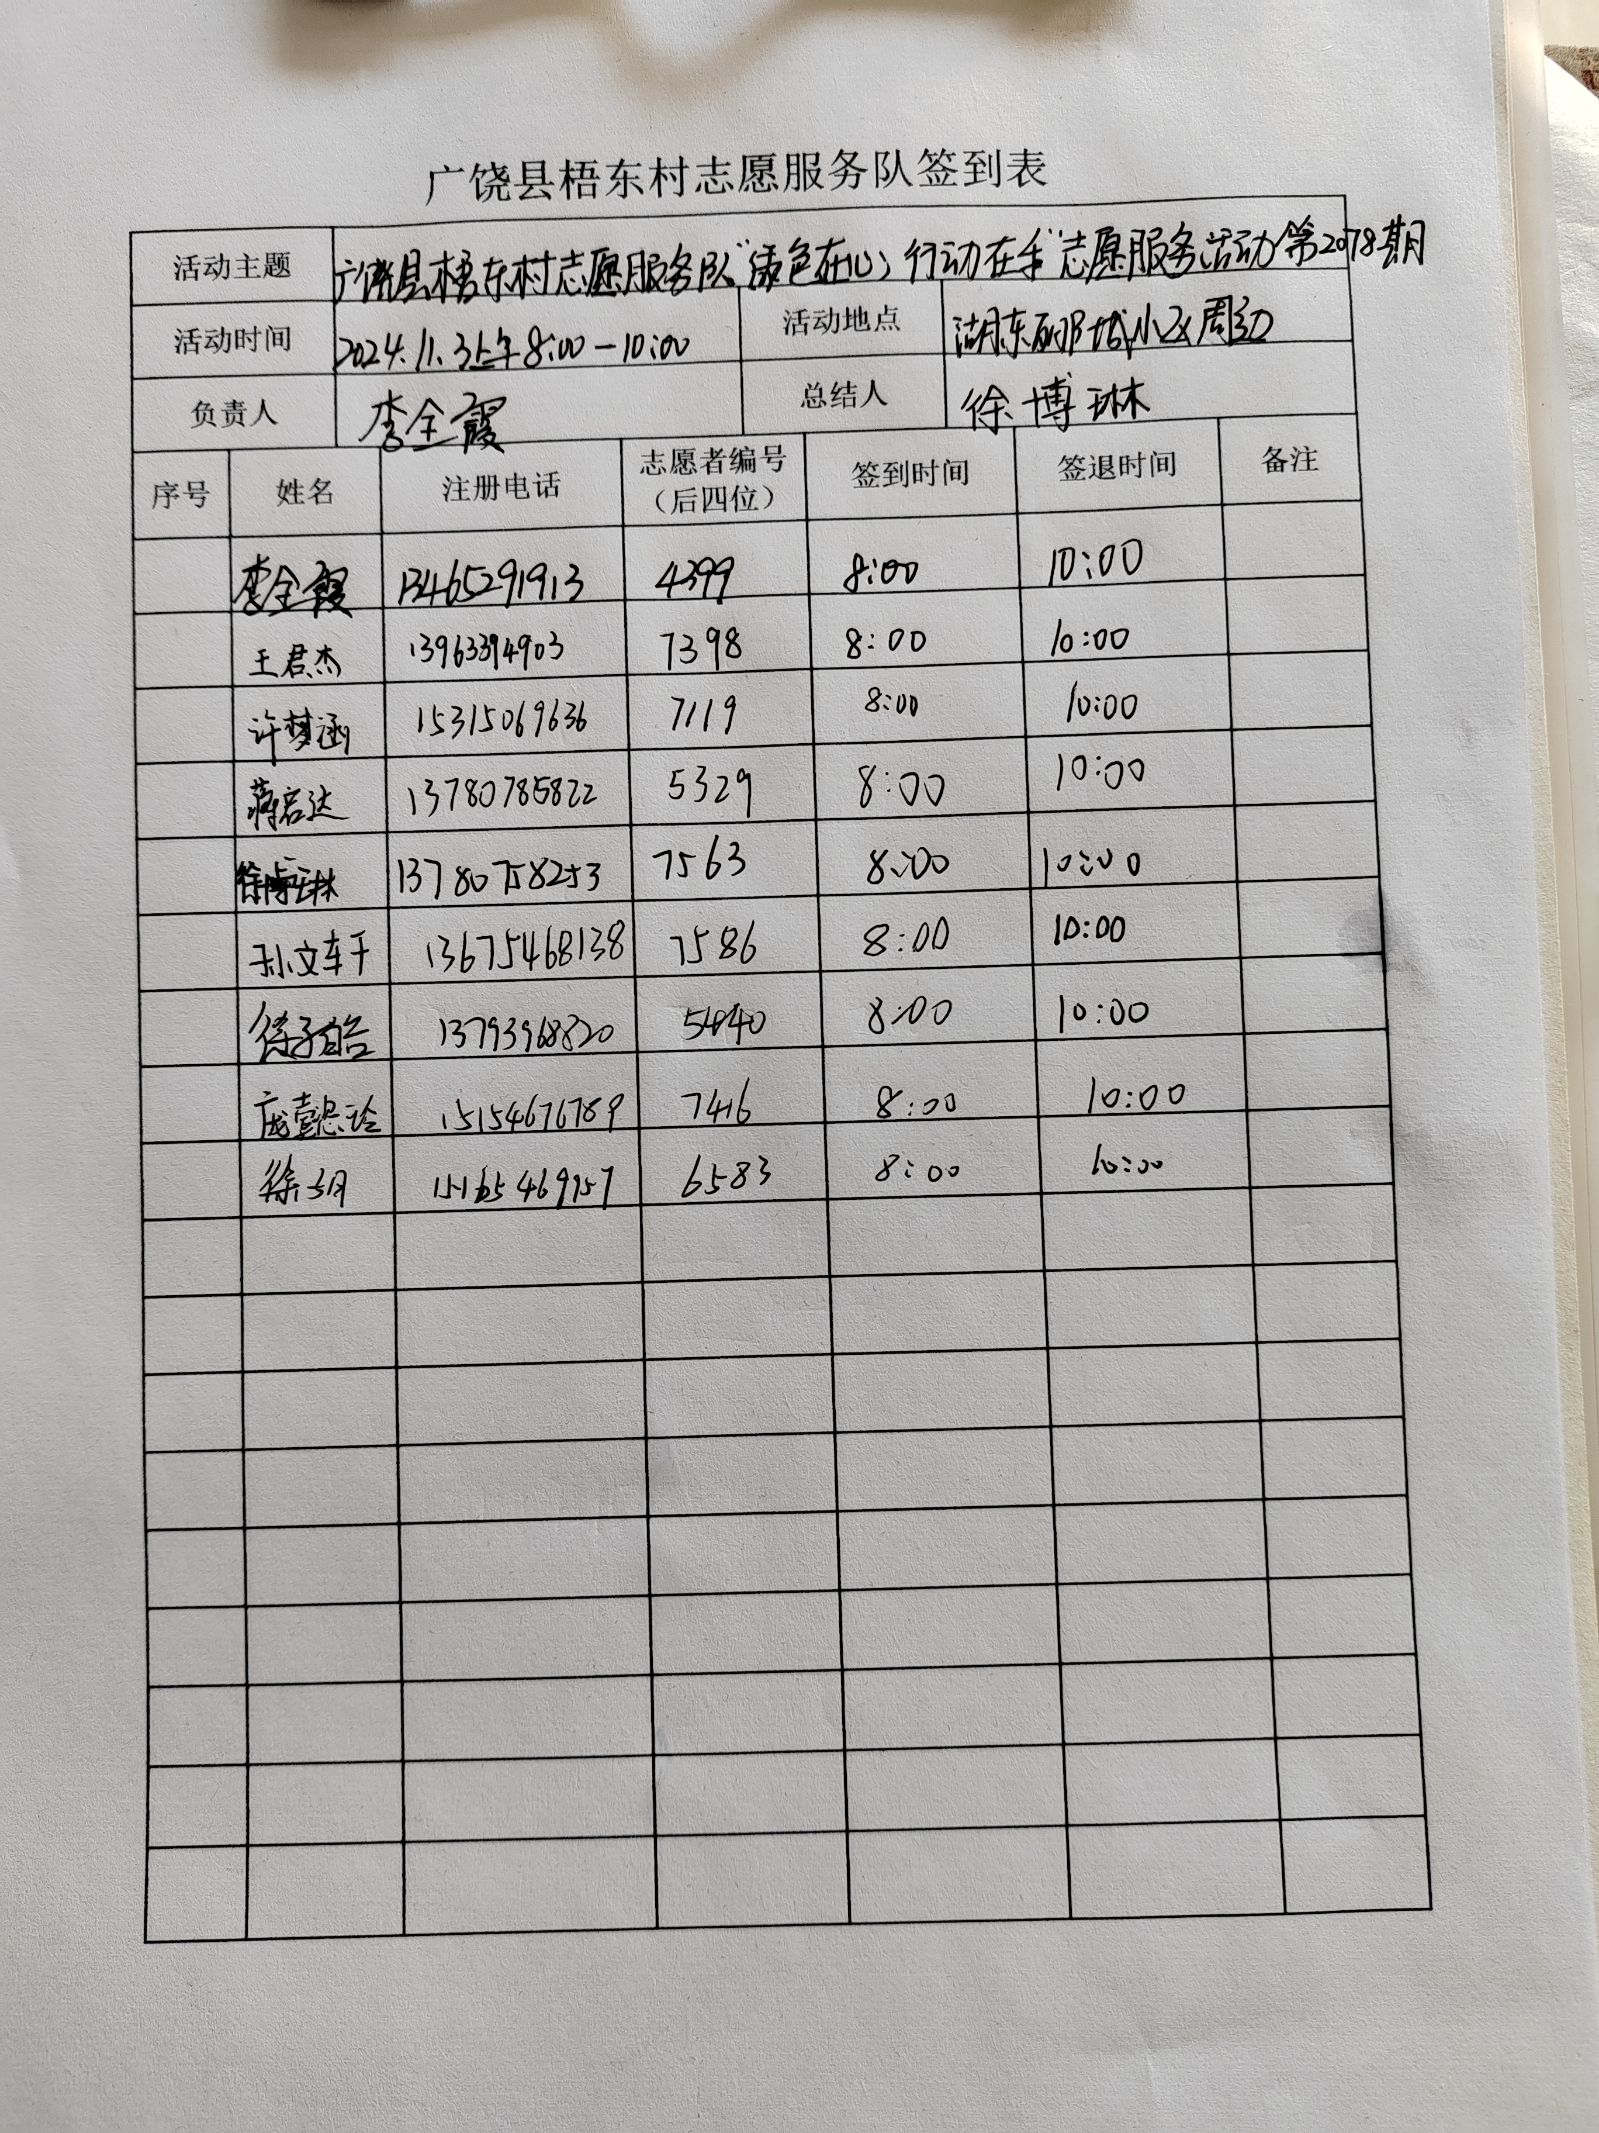 广饶县梧东村志愿服务队签到表
活动主题 广饶县梧东村志愿服务队“绿色在心，行动在手”志愿服务活动第2078期
活动时间 2024.11.3上午8:00-10:00 活动地点 湖东丽城小区周边
负责人 李全霞 总结人 徐博琳
序号 姓名 注册电话 志愿者编号（后四位） 签到时间 签退时间 备注
李全霞 13465291913 4399 8:00 10:00
王君杰 13963394903 7398 8:00 10:00
许梦涵 15315069636 7119 8:00 10:00
蒋启达 13780785822 5329 8:00 10:00
徐博琳 13780758253 7563 8:00 10:00
孙文轩 13675468138 7586 8:00 10:00
徐子 13793968820 8:00 10:00
庞 15154676789 7416 8:00 10:00
徐 6583 8:00 10:00